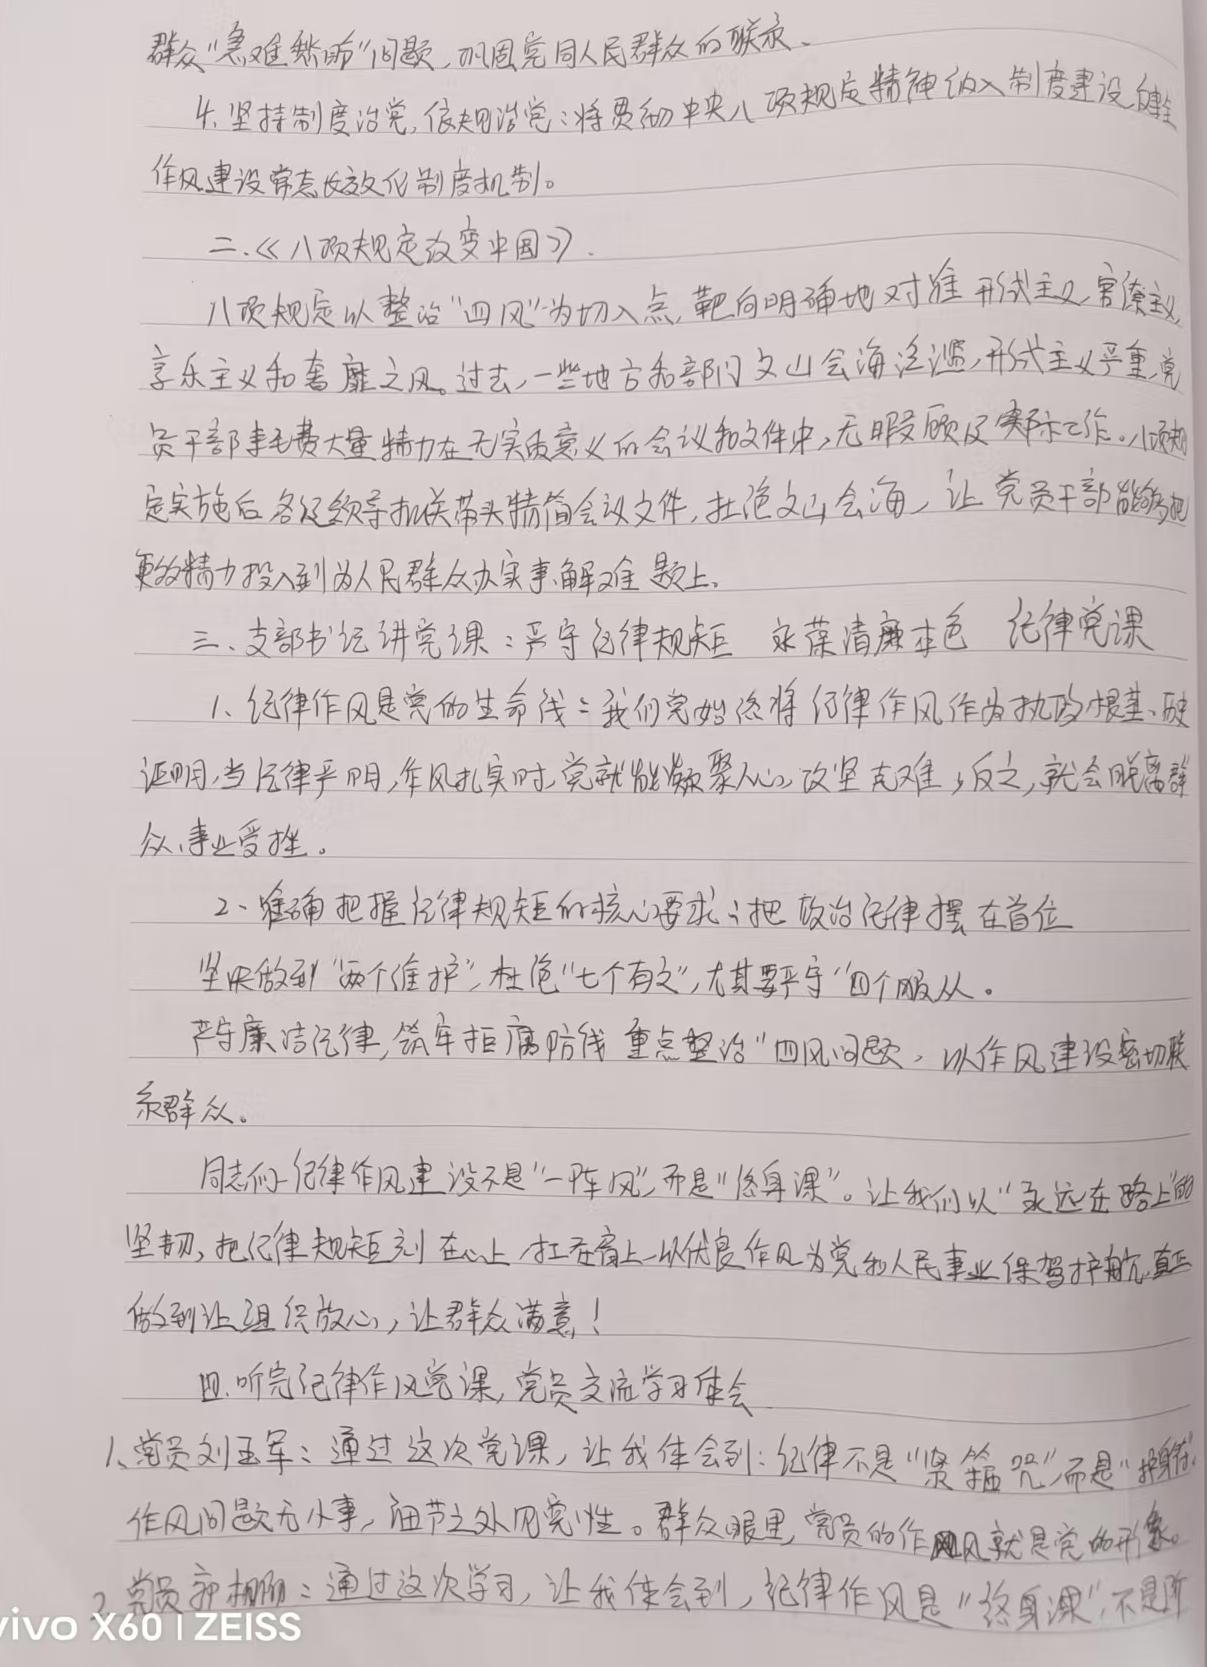 群众“急难愁盼”问题,巩固党同人民群众的联系、
4.坚持制度治党,依规治党:将贯彻中央八项规定精神纳入制度建设,健全
作风建设常态长效化制度机制。
二.《八项规定改变中国》.
八项规定以整治“四风”为切入点,靶向明确地对准形式主义,官僚主义,
享乐主义和奢靡之风。过去,一些地方和部门文山会海泛滥,形式主义严重,党
员干部耗费大量精力在无实质意义的会议和文件中,无暇顾及实际工作。八项规
定实施后,各级领导机关带头精简会议文件,杜绝文山会海,让党员干部能够把
更多精力投入到为人民群众办实事、解难题上、
三、支部书记讲党课:严守纪律规矩 永葆清廉本色 纪律党课
1、纪律作风是党的生命线:我们党始终将纪律作风作为执政根基、历史
证明,当纪律严明,作风扎实时,党就能凝聚人心,攻坚克难,反之,就会脱离群
众、事业受挫。
2、准确把握纪律规矩的核心要求:把政治纪律摆在首位
坚决做到“两个维护”,杜绝“七个有之”,尤其要严守“四个服从。
严守廉洁纪律,筑牢拒腐防线 重点整治“四风问题,以作风建设密切联
系群众。
同志们,纪律作风建设不是“一阵风”,而是“终身课”。让我们以“永远在路上”的
坚韧,把纪律规矩刻在心上,扛在肩上,以优良作风为党和人民事业保驾护航,真正
做到让组织放心,让群众满意!
四.听完纪律作风党课,党员交流学习体会
1、党员刘玉军:通过这次党课,让我体会到:纪律不是“紧箍咒”,而是“护身符”
作风问题无小事,细节之处见党性。群众眼里,党员的作风就是党的形象。
2.党员:通过这次学习,让我体会到,纪律作风是“终身课”,不是阶
vivo X60 | ZEISS